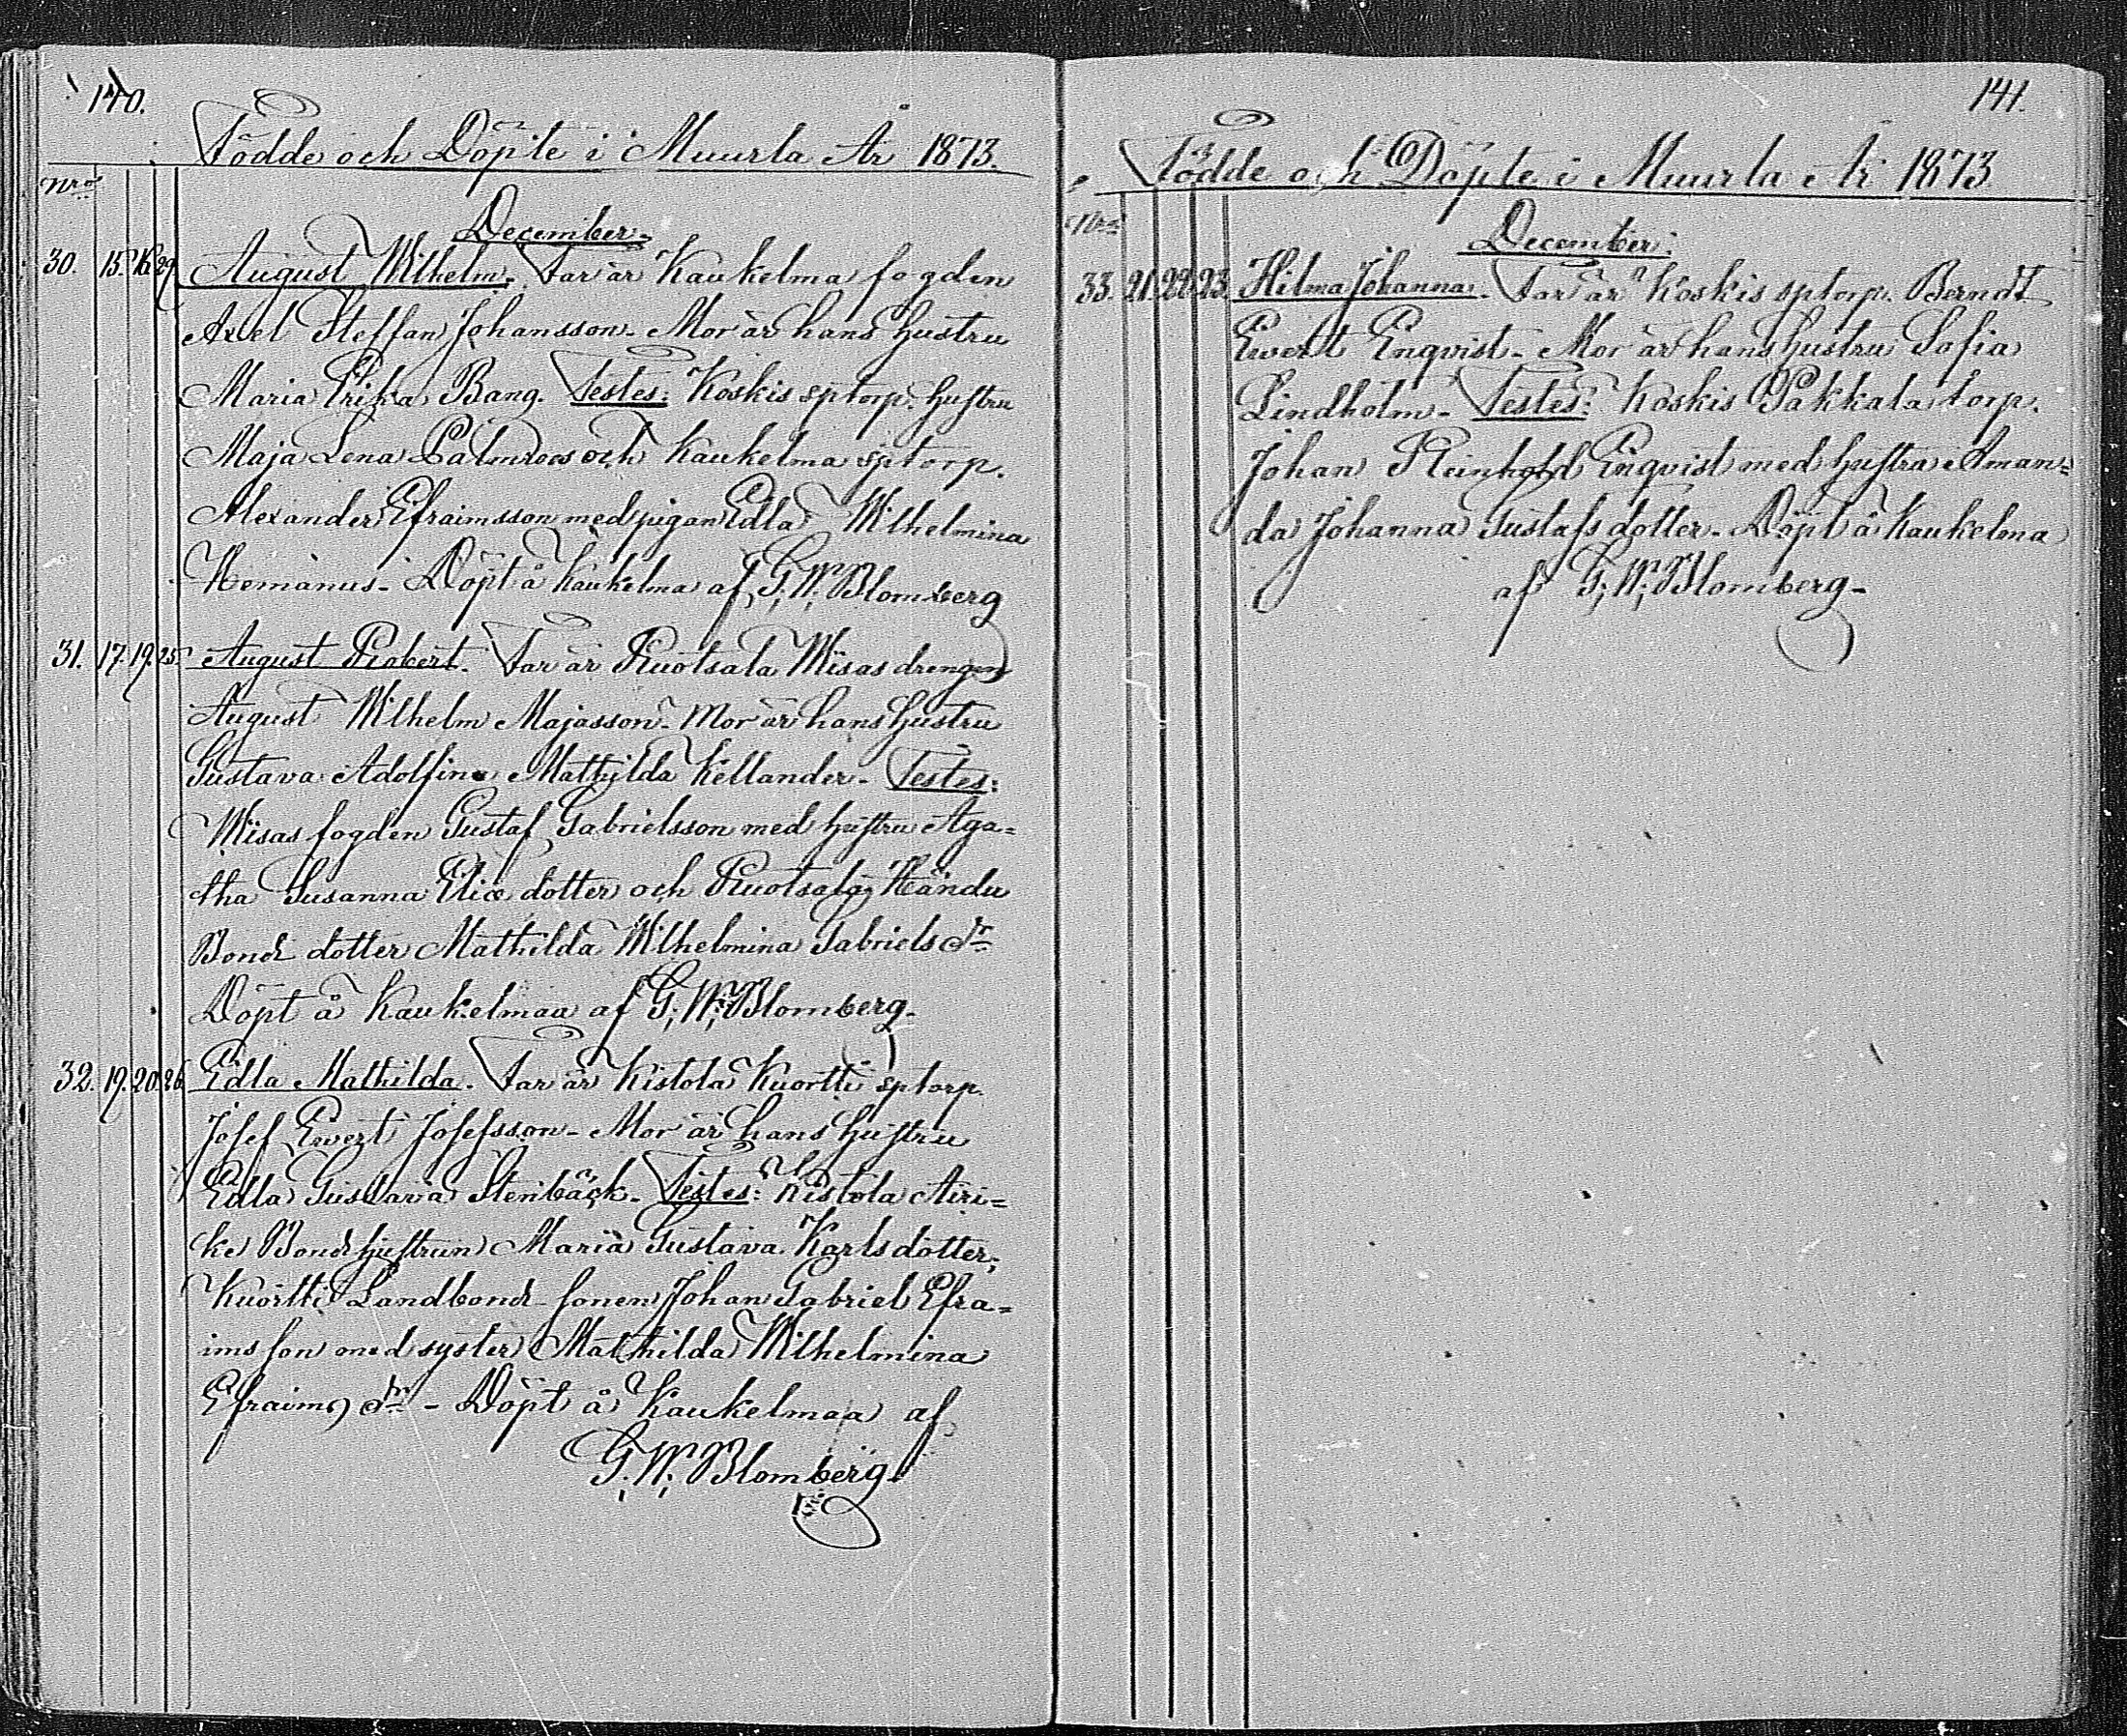 140.
Födde och Döpte i Muurla År 1873.
Nro
December.
30. 15. 16. 29. August Wilhelm. Far är Kaukelma fogden
Axel Steffan Johansson. Mor är hans hustru
Maria Erika Bang. Testes: Koskis sptorp. hustru
Maja Lena Palmroos och Kaukelma sptorp.
Alexander Efraimsson med pigan Edla Wilhelmina
Hemänus. Döpt å Kaukelma af G. W. Blomberg
31. 17. 19. 25. August Robert. Far är Ruotsala Wisas drengen
August Wilhelm Majasson. Mor är hans hustru
Gustava Adolfina Mathilda Kellander. Testes:
Wisas fogden Gustaf Gabrielsson med hustru Aga=
tha Susanna Elice dotter och Ruotsala Händu
Bond dotter Mathilda Wilhelmina Gabriels dr
Döpt å Kaukelmaa af G. W. Blomberg.
32. 19. 20. 26. Edla Mathilda. Far är Kistola Kuortti sptorp.
Josef Evert Josefsson. Mor är hans hustru
Edla Gustava Stenbäck. Testes: Kistola Airi=
ke Bond hustrun Maria Gustava Karlsdotter,
Kuortti Landbond sonen Johan Gabriel Efra=
imsson med syster Mathilda Wilhelmina
Efraims dr - Döpt å Kaukelmaa af
G. W. Blomberg.
141.
Födde och Döpte i Muurla År 1873
Nro
December.
33. 21. 22. 23. Hilma Johanna. Far är Koskis sptorp. Berndt
Evert Enqvist. Mor är hans hustru Sofia
Lindholm. Testes: Koskis Pakkala torp.
Johan Reinhold Enqvist med hustru Aman=
da Johanna Gustafs dotter. Döpt å Kaukelma
af G. W. Blomberg.